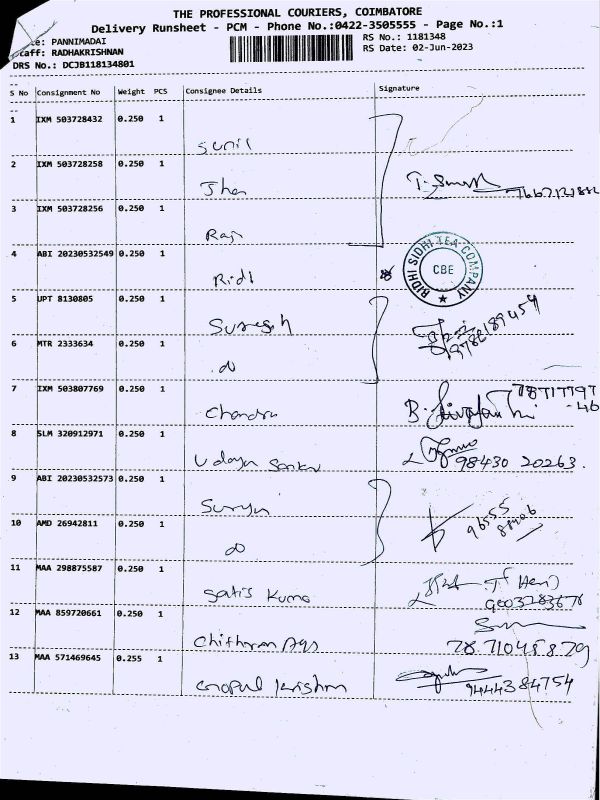 THE PROFESSIONAL COURIERS, COIMBATORE
Delivery Runsheet - PCM - Phone No.:0422-3505555 - Page No.:1
PANNIMADAI
RS No.: 1181348
Staff: RADHAKRISHNAN
RS Date: 02-Jun-2023
DRS No.: DCJB118134801
S No Consignment No Weight PCS Consignee Details Signature
1 IXM 503728432 0.250 1
Sunil
2 IXM 503728258 0.250 1
3 IXM 503728256 0.250 1
Raji
4 ABI 20230532549 0.250 1
Ridi
RIDHI SIDHI TEA COMPANY
CBE
5 UPT 8130805 0.250 1
Suresh
9786189454
6 MTR 2333634 0.250 1
do
7 IXM 503807769 0.250 1
Chandru
78717797
-46
8 SLM 320912971 0.250 1
Udaya Sankar
98430 20263.
9 ABI 20230532573 0.250 1
Surya
10 AMD 26942811 0.250 1
do
96555
11 MAA 298875587 0.250 1
Satis Kumar
9003283676
12 MAA 859720661 0.250 1
Chithran Ags
78710458 79
13 MAA 571469645 0.255 1
Gopal krishnan
9444384754